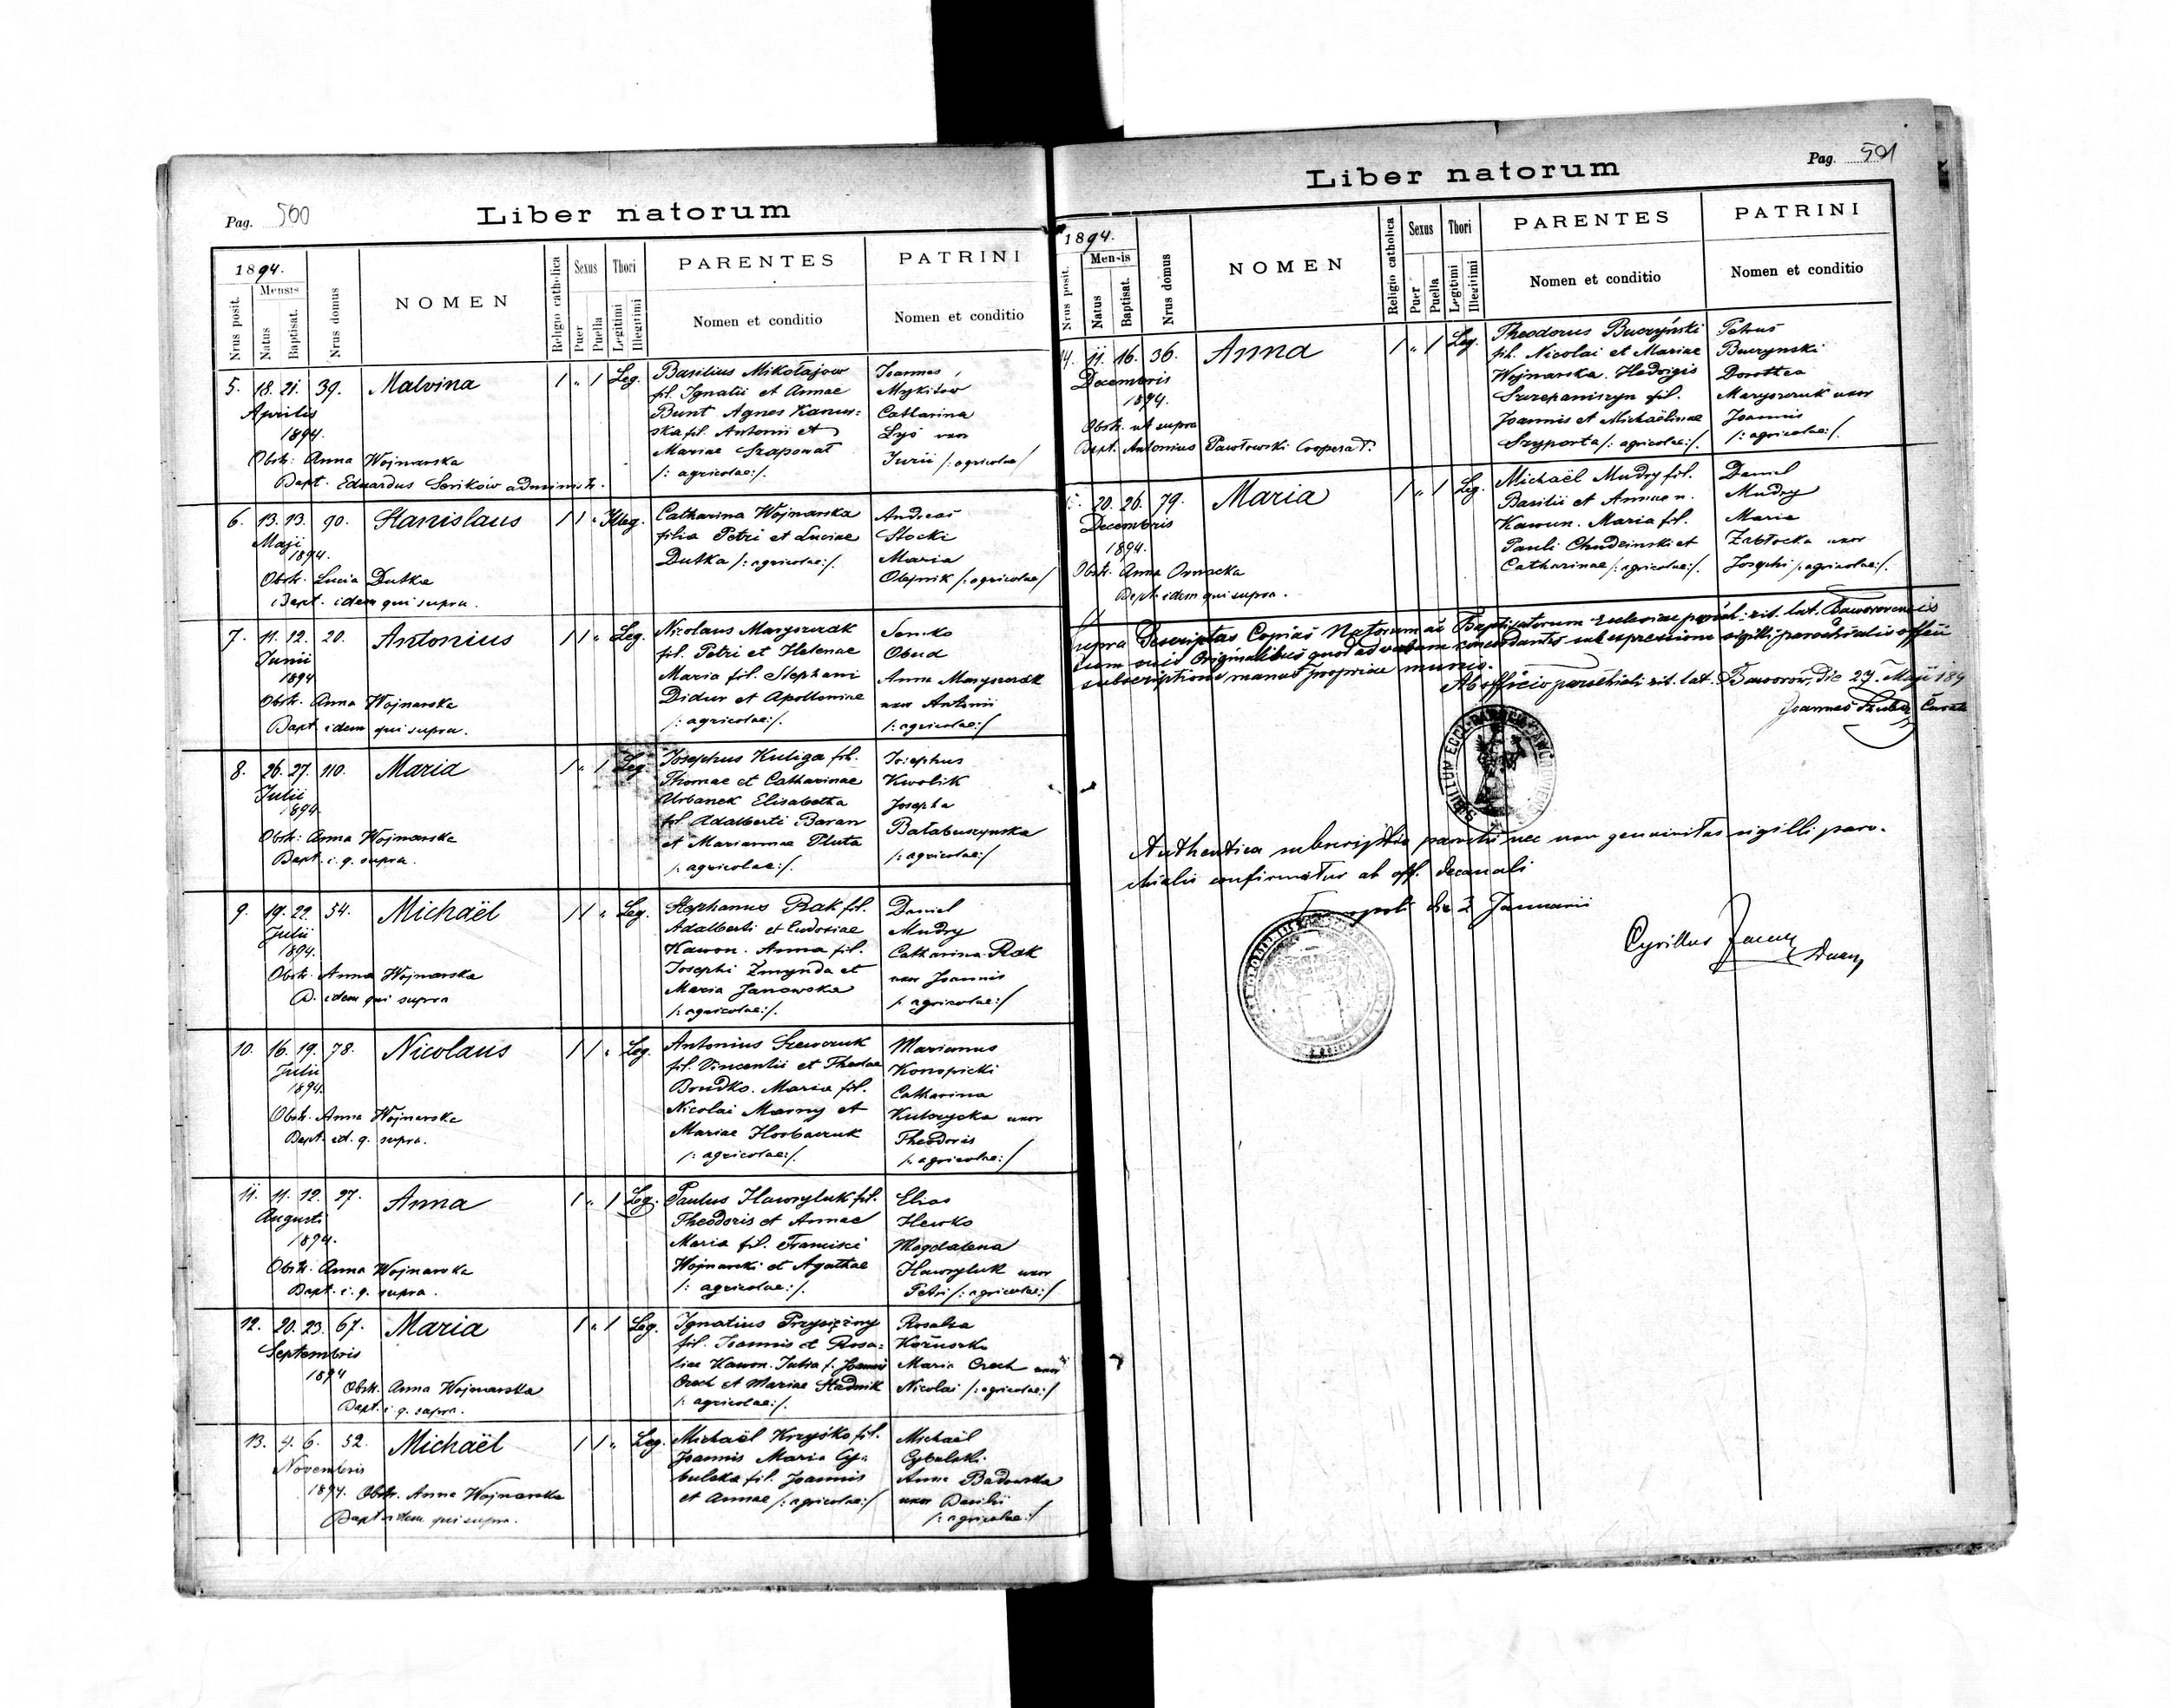 Pag. 500
Liber natorum
1894.
Nrus posit.
Mensis
Natus
Baptisat.
Nrus domus
NOMEN
Religio catholica
Sexus
Puer
Puella
Thori
Legitimi
Illegitimi
PARENTES
Nomen et conditio
PATRINI
Nomen et conditio
5. 18. 21. 39. Malvina 1 " 1 Leg.
Aprilis
1894.
Obstr: Anna Wojnarska
Bapt. Eduardus Serików administr.
Basilius Mikołajow
fil. Ignatii et Annae
Bunt Agnes Kanus=
ska fil. Antonii et
Mariae Szaponat
/: agricolae:/.
Joannes
Mykitow
Catharina
Łyś uxor
Jurii /: agricolae/
6. 13. 13. 90. Stanislaus 1 1 " Illeg.
Maji
1894.
Obstr. Lucia Dutka
Bapt. idem qui supra.
Catharina Wojnarska
filia Petri et Luciae
Dutka /: agricolae:/.
Andreas
Stocki
Maria
Olejnik /: agricolae/
7. 11. 12. 20. Antonius 1 1 " Leg.
Junii
1894
Obstr. Anna Wojnarska
Bapt idem qui supra.
Nicolaus Maryszczak
fil. Petri et Helenae
Maria fil. Stephani
Didur et Apolloniae
/: agricolae:/.
Semko
Obud
Anna Maryszczak
uxor Antonii
/: agricolae:/
8. 26. 27. 110. Maria 1 " 1 Leg.
Julii
1894
Obstr: Anna Wojnarska
Bapt. i. q. supra.
Josephus Kuliga fil.
Thomae et Catharinae
Urbanek Elisabetha
fil. Adalberti Baran
et Mariannae Pluta
/: agricolae:/.
Josephus
Kwolik
Josepha
Bałabuszynska
/: agricolae:/
9. 19. 22. 54. Michaël 1 1 " Leg.
Julii
1894.
Obstr. Anna Wojnarska
B. idem qui supra
Stephanus Rak fil.
Adalberti et Eudosiae
Kawon. Anna fil.
Josephi Żmynda et
Maria Janowska
/: agricolae:/.
Daniel
Mudry
Catharina Rak
uxor Joannis
/: agricolae:/
10. 16. 19. 78. Nicolaus 1 1 " Leg.
Julii
1894.
Obstr. Anna Wojnarska
Bapt. id. q. supra.
Antonius Szewczuk
fil. Vincentii et Theclae
Bondko. Maria fil.
Nicolai Marny et
Mariae Horbaczuk
/: agricolae:/.
Marianus
Konopicki
Catharina
Kulszycka uxor
Theodoris
/: agricolae:/
11. 11. 12. 27. Anna 1 " 1 Leg.
Augusti
1894.
Obstr. Anna Wojnarska
Bapt. i. q. supra.
Paulus Hawryluk fil.
Theodoris et Annae
Maria fil. Francisci
Wojnarski et Agathae
/: agricolae:/.
Elias
Hewko
Magdalena
Hawryluk uxor
Petri /: agricolae:/
12. 20. 23. 67. Maria 1 " 1 Leg.
Septembris
1894
Obstr. Anna Wojnarska
Bapt. i. q. supra.
Ignatius Przysiężny
fil. Joannis et Rosa=
liae Kawon. Julia f. Joannis
Orech et Mariae Stadnik
/: agricolae:/.
Rosalia
Kożuszko
Maria Orech uxor
Nicolai /: agricolae:/
13. 4. 6. 52. Michaël 1 1 " Leg.
Novembris
1894. Obstr. Anna Wojnarska
Bapt idem qui supra.
Michaël Krzyśko fil.
Joannis Maria Cy=
bulska fil. Joannis
et Annae /: agricolae:/
Michaël
Cybulski
Anna Badowska
uxor Basilii
/: agricolae:/
Pag. 501
Liber natorum
1894.
Nrus posit.
Mensis
Natus
Baptisat.
Nrus domus
NOMEN
Religio catholica
Sexus
Puer
Puella
Thori
Legitimi
Illegitimi
PARENTES
Nomen et conditio
PATRINI
Nomen et conditio
14. 11. 16. 36. Anna 1 " 1 Leg.
Decembris
1894.
Obstr. ut supra
Bapt. Antonius Pawłowski Cooperat.
Theodorus Buczyński
fil. Nicolai et Mariae
Wojnarska. Hedvigis
Szczepaniszyn fil.
Joannis et Michaëlinae
Szyporta /: agricolae:/.
Petrus
Buczynski
Dorothea
Maryszczuk uxor
Joannis
/: agricolae:/.
20. 26. 79. Maria 1 " 1 Leg.
Decembris
1894.
Obstr. Anna
Bapt. idem qui supra.
Michaël Mudry fil.
Basilii et Annae n.
Kawun. Maria fil.
Pauli Chudzinski et
Catharinae /: agricolae:/.
Daniel
Mudry
Maria
Zabłocka uxor
Josephi /: agricolae:/.
Supra Descriptas Copias Natorum ac Baptisatorum Ecclesiae paroch: rit. lat. Baworoviensis
cum suis Originalibus quoad verbum concordantes sub expressione sigilli parochialis officii
subscriptione manus propriae munio.
Ab officio parochiali rit. lat. Baworow, die 27. Maji 189
Joannes
Authentica subscriptio parochi nec non genuinitas sigilli paro-
chialis confirmatur ab off. decanali
Tarnopoli die 2 Januarii
Cyrillus